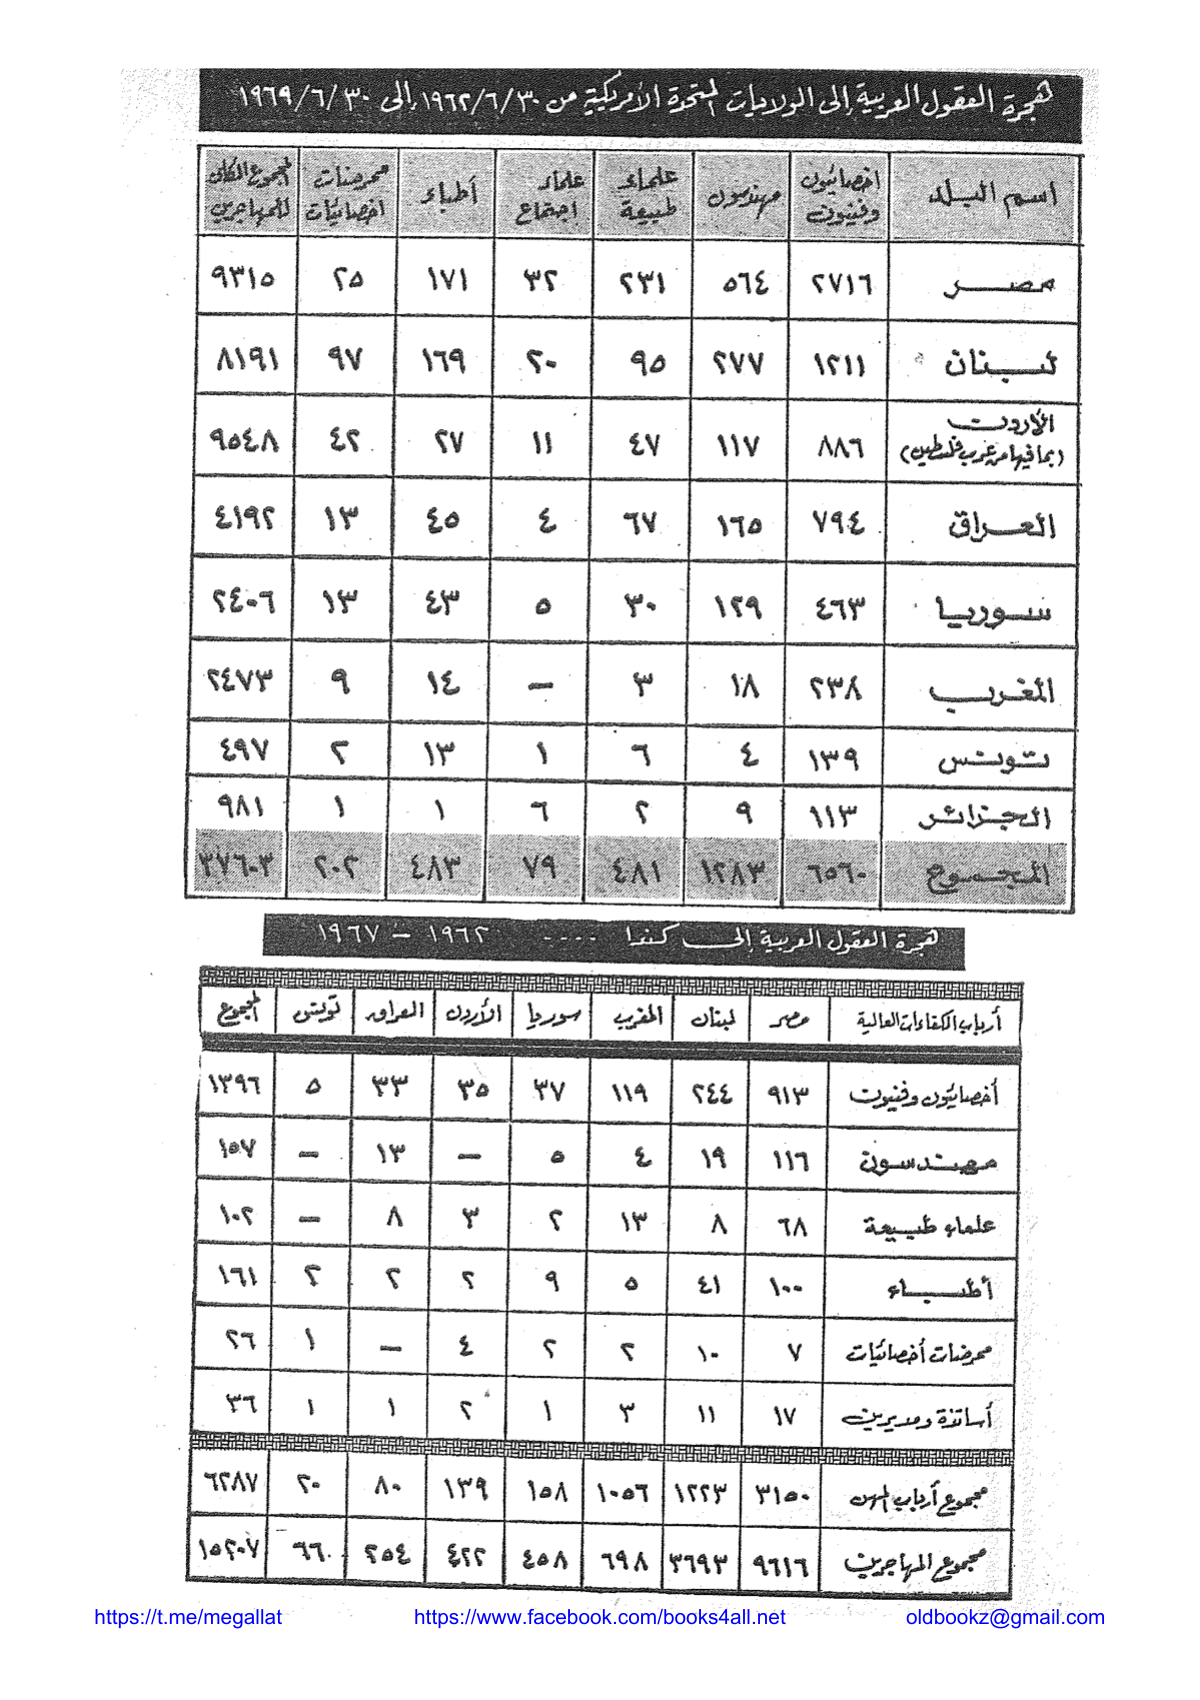 هجرة العقول العربية إلى الولايات المتحدة الأمريكية من ٣٠/٦/١٩٦٢ إلى ٣٠/٦/١٩٦٩
اسم البلد | اخصائيون وفنيون | مهندسون | علماء طبيعة | علماء اجتماع | أطباء | ممرضات اخصائيات | المجموع الكلى للمهاجرين
مصر | ٢٧١٦ | ٥٦٤ | ٢٣١ | ٣٢ | ١٧١ | ٢٥ | ٩٣١٥
لبنان | ١٢١١ | ٢٧٧ | ٩٥ | ٢٠ | ١٦٩ | ٩٧ | ٨١٩١
الأردن (بما فيها من عرب فلسطين) | ٨٨٦ | ١١٧ | ٤٧ | ١١ | ٢٧ | ٤٢ | ٩٥٤٨
العراق | ٧٩٤ | ١٦٥ | ٦٧ | ٤ | ٤٥ | ١٣ | ٤١٩٢
سوريا | ٤٦٣ | ١٢٩ | ٣٠ | ٥ | ٤٣ | ١٣ | ٢٤٠٦
المغرب | ٢٣٨ | ١٨ | ٣ | — | ١٤ | ٩ | ٢٤٧٣
تونس | ١٣٩ | ٤ | ٦ | ١ | ١٣ | ٢ | ٤٩٧
الجزائر | ١١٣ | ٩ | ٢ | ٦ | ١ | ١ | ٩٨١
المجموع | ٦٥٦٠ | ١٢٨٣ | ٤٨١ | ٧٩ | ٤٨٣ | ٢٠٢ | ٣٧٦٠٣
هجرة العقول العربية إلى كندا .... ١٩٦٢ – ١٩٦٧
أرباب الكفاءات العالية | مصر | لبنان | المغرب | سوريا | الأردن | العراق | تونس | المجموع
أخصائيون وفنيون | ٩١٣ | ٢٤٤ | ١١٩ | ٣٧ | ٣٥ | ٣٣ | ٥ | ١٣٩٦
مهندسون | ١١٦ | ١٩ | ٤ | ٥ | — | ١٣ | — | ١٥٧
علماء طبيعة | ٦٨ | ٨ | ١٣ | ٢ | ٣ | ٨ | — | ١٠٢
أطباء | ١٠٠ | ٤١ | ٥ | ٩ | ٢ | ٢ | ٢ | ١٦١
ممرضات أخصائيات | ٧ | ١٠ | ٢ | ٢ | ٤ | — | ١ | ٢٦
أساتذة ومديرين | ١٧ | ١١ | ٣ | ١ | ٢ | ١ | ١ | ٣٦
مجموع أرباب المهن | ٣١٥٠ | ١٢٢٣ | ١٠٥٦ | ١٥٨ | ١٣٩ | ٨٠ | ٢٠ | ٦٢٨٧
مجموع المهاجرين | ٩٦١٦ | ٣٦٩٣ | ٦٩٨ | ٤٥٨ | ٤٢٢ | ٢٥٤ | ٦٦ | ١٥٢٠٧
https://t.me/megallat https://www.facebook.com/books4all.net oldbookz@gmail.com